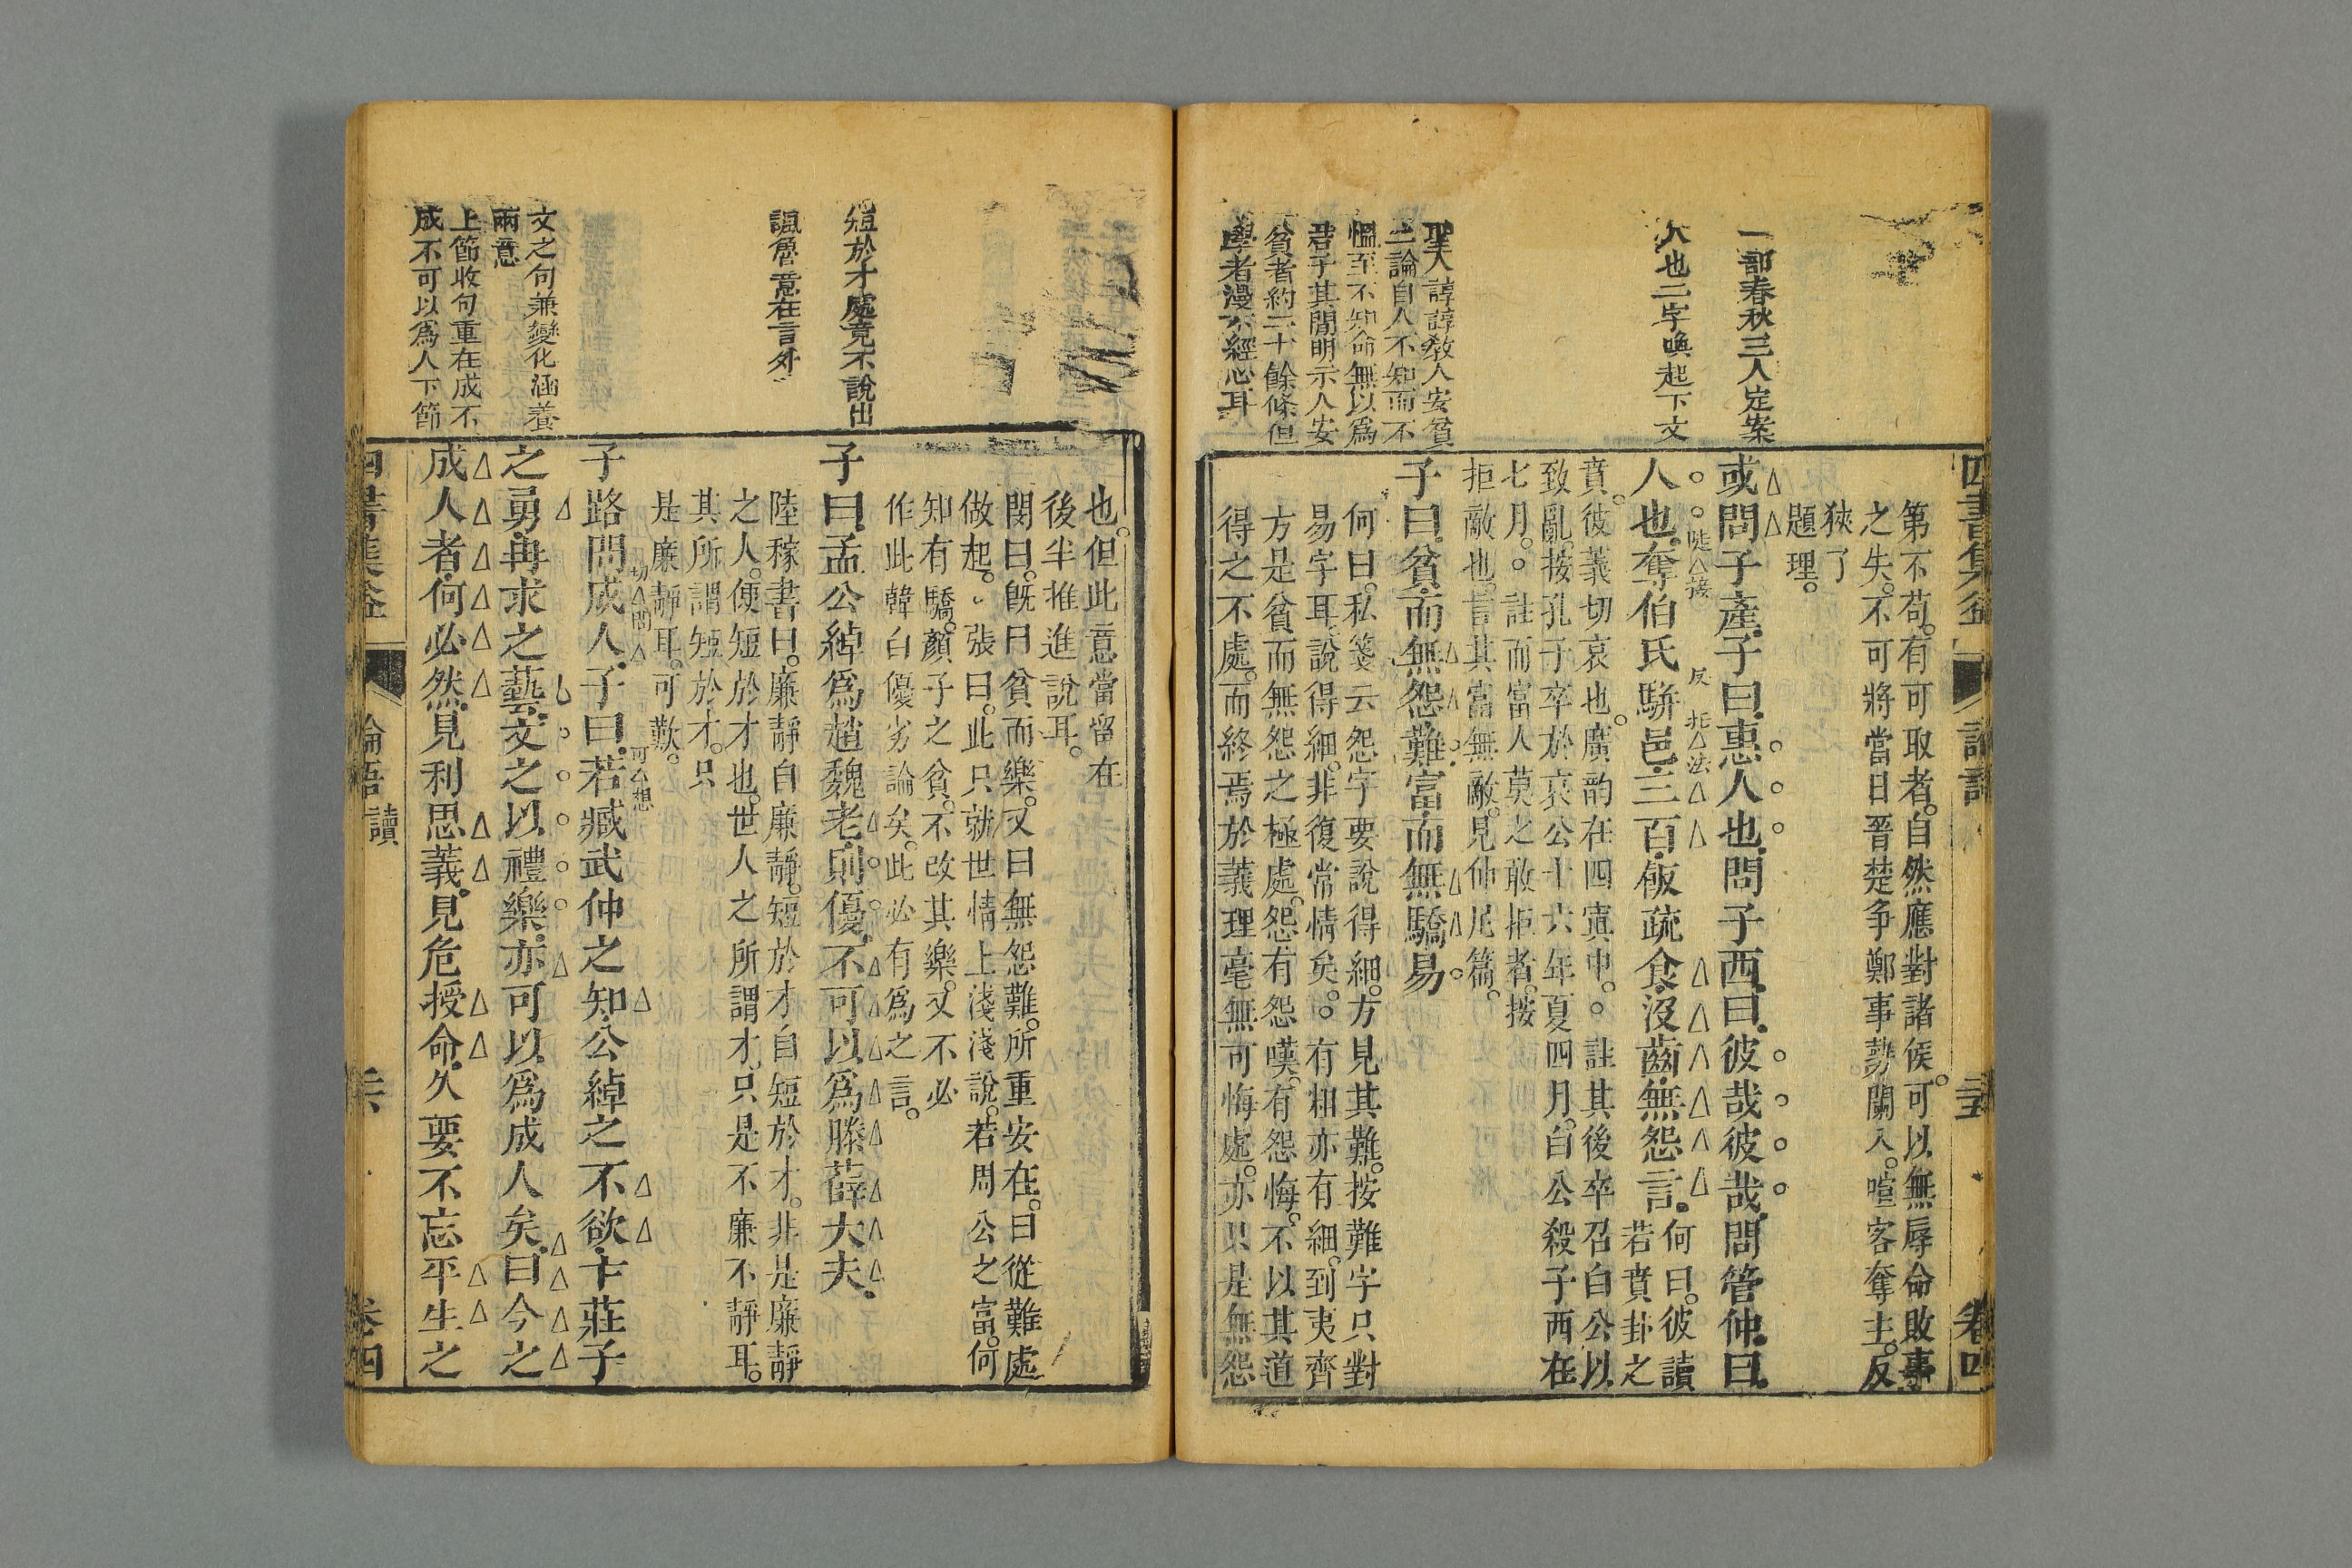 一部春秋三人定案
人也二字喚起下文
聖人諄諄教人安貧
二論自人不知而不
慍至不知命無以爲
君子其間明示人安
貧者約二十餘條但
學者漫不經心耳
四書集益
論語
卷四
第不苟有可取者自然應對諸侯可以無辱命敗事
之失不可將當日晉楚爭鄭事勢闌入喧客奪主反
狹了
題理
或問子產子曰惠人也問子西曰彼哉彼哉問管仲曰
人也奪伯氏駢邑三百飯疏食沒齒無怨言
何曰彼讀
若賁卦之
賁彼義切哀也廣韵在四寘中註其後卒召白公以
致亂按孔子卒於哀公十六年夏四月白公殺子西在
七月註而富人莫之敢拒者按
拒敵也言其富無敵見仲尼篇
子曰貧而無怨難富而無驕易
何曰私箋云怨字要說得細方見其難按難字只對
易字耳說得細非復常情矣有粗亦有細到夷齊
方是貧而無怨之極處怨有怨嘆有怨悔不以其道
得之不處而終焉於義理毫無可悔處亦只是無怨
短於才處竟不說出
諷魯意在言外
文之句兼變化涵養
兩意
上節收句重在成不
成不可以爲人下節
也但此意當留在
後半推進說耳
閔曰既曰貧而樂又曰無怨難所重安在曰從難處
做起張曰此只就世情上淺淺說若周公之富何
知有驕顏子之貧不改其樂又不必
作此韓白優劣論矣此必有爲之言
子曰孟公綽爲趙魏老則優不可以爲滕薛大夫
陸稼書曰廉靜自廉靜短於才自短於才非是廉靜
之人便短於才也世人之所謂才只是不廉不靜耳
其所謂短於才只
是廉靜耳可歎
子路問成人子曰若臧武仲之知公綽之不欲卞莊子
之勇冉求之藝文之以禮樂亦可以爲成人矣曰今之
成人者何必然見利思義見危授命久要不忘平生之
四書集益
論語
讀
卷四